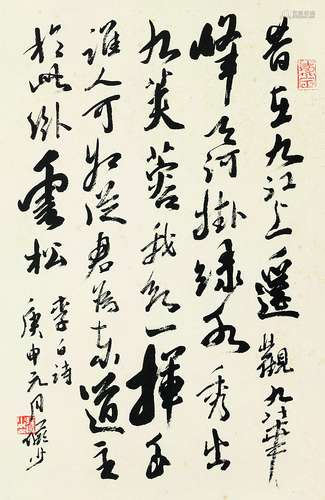 昔在九江上遙觀九華
峰天河掛綠水秀出
九芙蓉我欲一揮手
誰人可相從君為東道主
於此卧雲松
李白詩
庚申元月